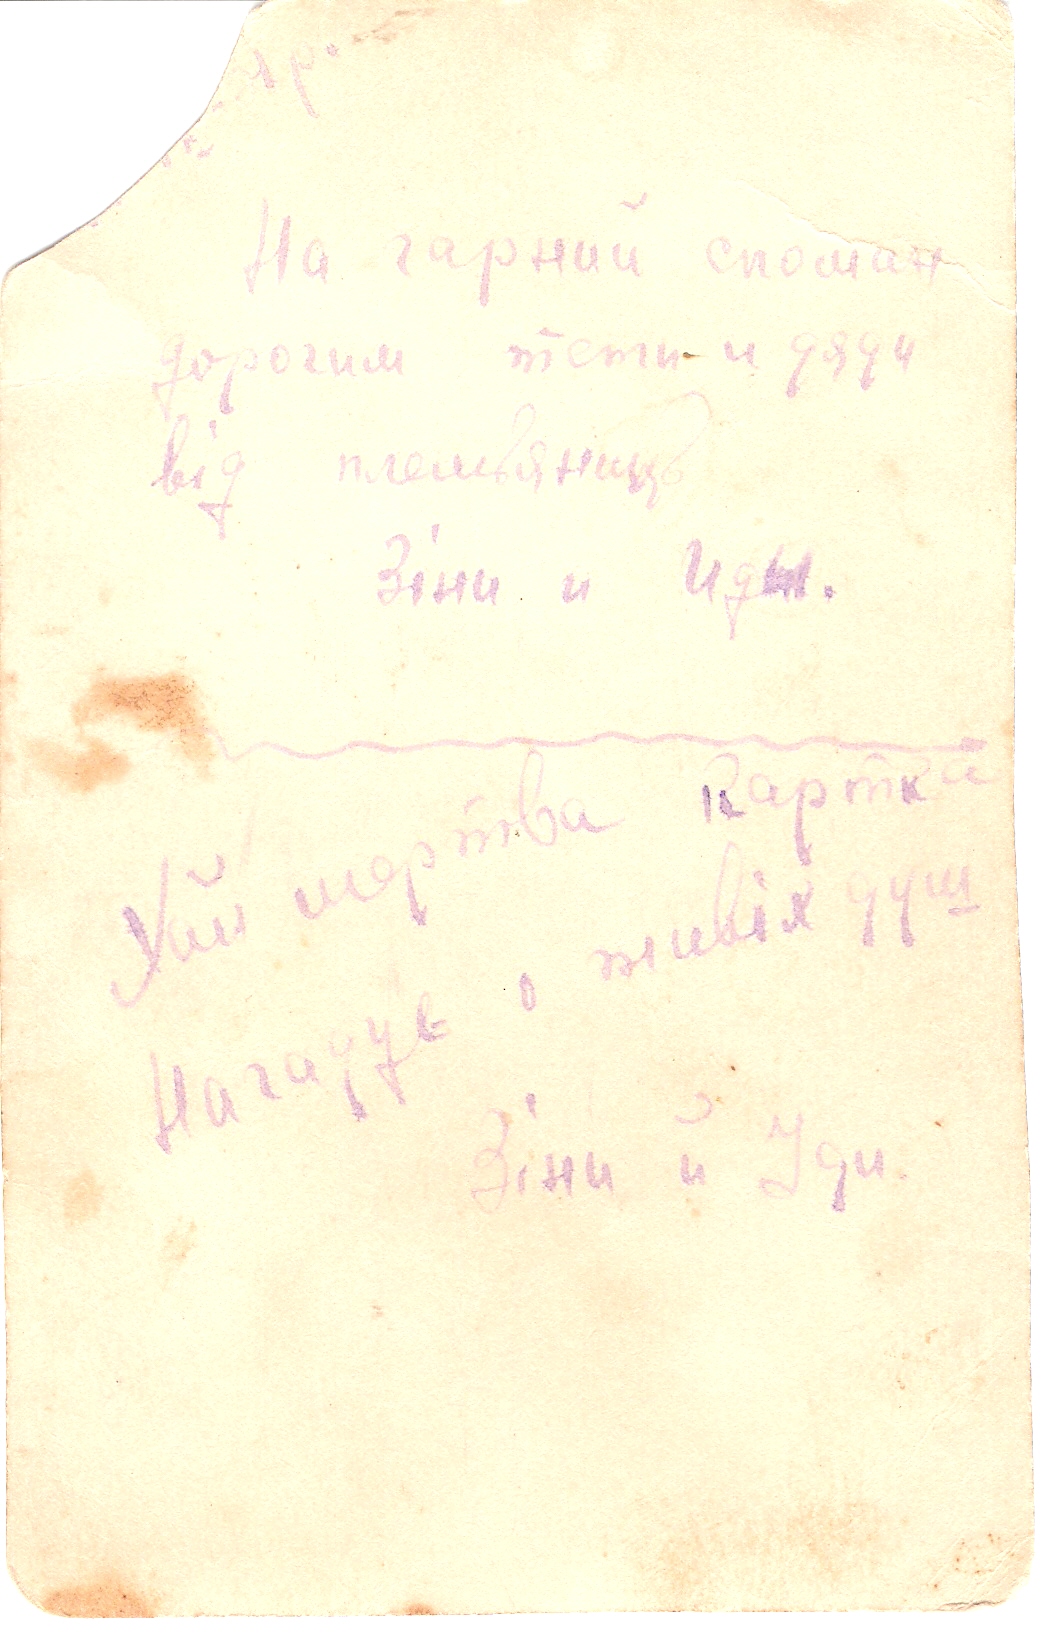 На гарний споман
дорогим тети и дяди
від племьяниць
Зіни и Иды.
Хай мертва картка
Нагадує о живіх душ
Зіни й Іди.